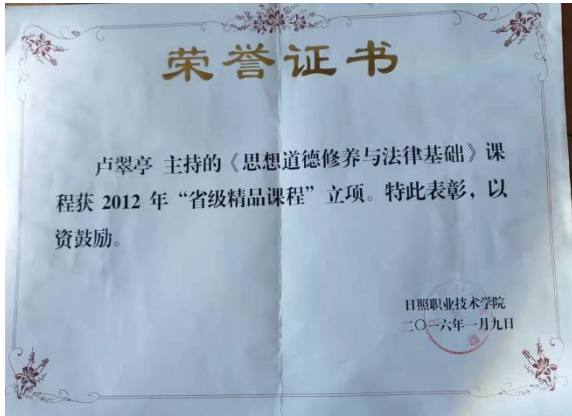 荣誉证书
卢翠亭 主持的《思想道德修养与法律基础》课
程获 2012 年“省级精品课程”立项。特此表彰，以
资鼓励。
日照职业技术学院
二〇一六年一月九日